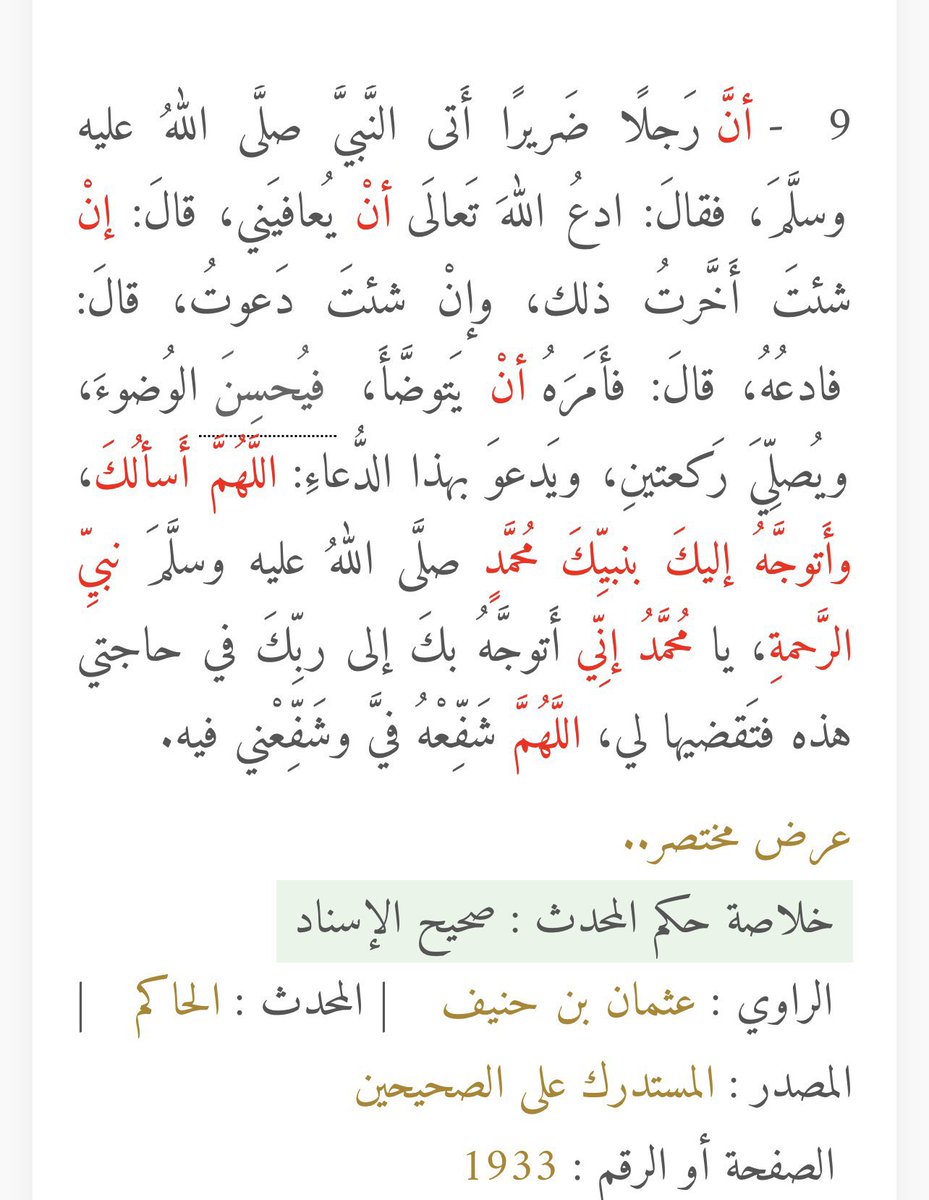 9 - أنَّ رَجلًا ضَريرًا أَتى النَّبيَّ صلَّى اللهُ عليه
وسلَّمَ، فقالَ: ادعُ اللهَ تَعالَى أنْ يُعافيَني، قالَ: إنْ
شئتَ أَخَّرتُ ذلك، وإنْ شئتَ دَعوتُ، قالَ:
فادعُهُ، قالَ: فأَمَرَهُ أنْ يَتوضَّأَ، فيُحسِنَ الوُضوءَ،
ويُصلِّيَ رَكعتينِ، ويَدعوَ بهذا الدُّعاءِ: اللَّهُمَّ أَسألُكَ،
وأَتوجَّهُ إليكَ بنبيِّكَ مُحمَّدٍ صلَّى اللهُ عليه وسلَّمَ نبيِّ
الرَّحمةِ، يا مُحمَّدُ إنِّي أَتوجَّهُ بكَ إلى ربِّكَ في حاجتي
هذه فتَقضيها لي، اللَّهُمَّ شَفِّعْهُ فيَّ وشَفِّعْني فيه.
عرض مختصر..
خلاصة حكم المحدث : صحيح الإسناد
الراوي : عثمان بن حنيف | المحدث : الحاكم |
المصدر : المستدرك على الصحيحين
الصفحة أو الرقم : 1933